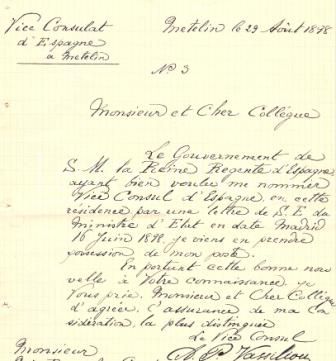 Vice Consulat
d'Espagne
à Metelin
Metelin le 29 Août 1898
No 3
Monsieur et Cher Collègue
Le Gouvernement de
S. M. la Reine Regente d'Espagne
ayant bien voulu me nommer
Vice Consul d'Espagne en cette
résidence par une lettre de S. E. du
Ministre d'Etat en date Madrid
16 Juin 1898, je viens en prendre
possession de mon poste.
En portant cette bonne nou
velle à Votre connaissance je
Vous prie, Monsieur et Cher Collègue
d'agréer l'assurance de ma Con
sidération la plus distinguée
Le Vice Consul
Vassiliou
Monsieur